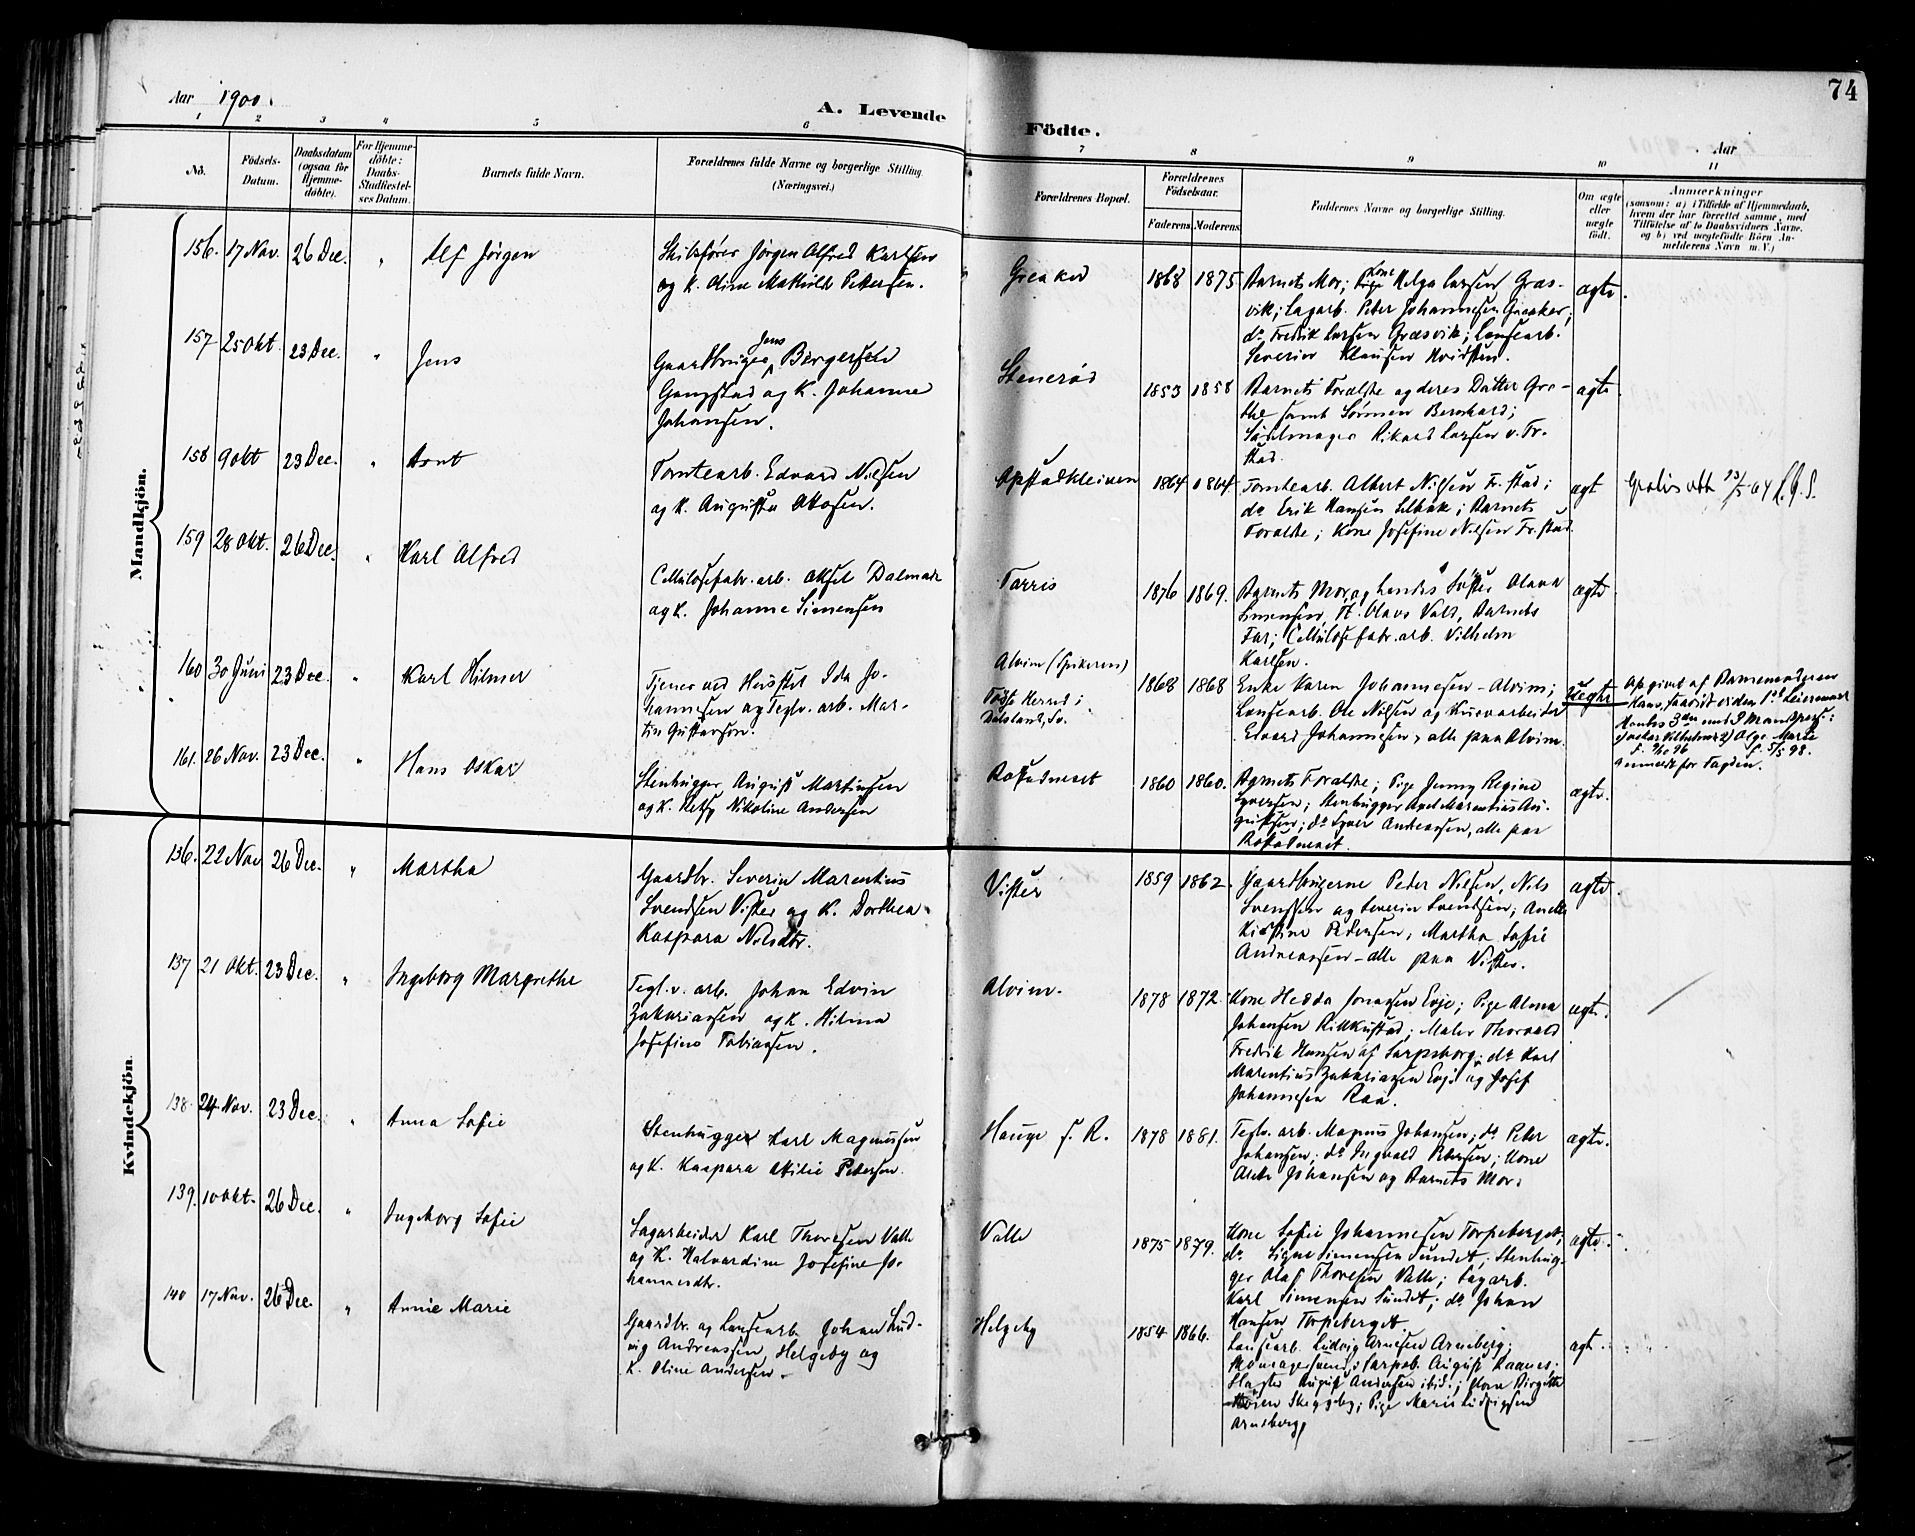 74
Aar 1900.
A. Levende
Födte.
Aar
1 2 3 4 5 6 7 8 9 10 11
No.
Födsels-Datum.
Daabsdatum (ogsaa for Hjemme-döbte).
For Hjemme-döbte: Daabs-Stadfæstel-ses Datum.
Barnets fulde Navn.
Forældrenes fulde Navne og borgerlige Stilling. (Næringsvei.)
Forældrenes Bopæl.
Forældrenes Födselsaar.
Faderens. Moderens.
Faddernes Navne og borgerlige Stilling.
Om ægte eller uægte födt.
Anmærkninger
(saasom: a) i Tilfælde af Hjemmedaab,
hvem der har forrettet samme, med
Tilföielse af to Daabsvidners Navne,
og b) ved uægtefödte Börn An-
melderens Navn m. V.)
Mandkjön.
156. 17 Nov. 26 Dec. " Alf Jørgen
Skibsfører Jørgen Alfred Karlsen
og K. Oline Mathilde Pettersen.
Greaker 1868 1875
Barnets Mor; Kone Helga Larsen Græs-
vik; Sagarb. Peter Johannesen Greaker;
do Fredrik Larsen Græsvik; Lansearb.
Severin Klausen Hvidsten.
ægte.
157 25 Okt. 23 Dec. " Jens
Gaardbruger Jens Børgersen
Gangstad og K. Johanne
Johansen.
Stenerød 1853 1858
Barnets Forældre og deres Datter Gre-
the samt Sønnen Bernhard;
Seilmager Rikard Larsen v. Fr.
stad.
ægte
158 9 Okt 23 Dec. " Arnt
Tomtearb. Edvard Nilsen
og K. Augusta Ottosen.
Opstadkleiven 1864 1864
Tomtearb. Albert Nilsen Fr.stad;
do Erik Hansen Lilbæk; Barnets
Forældre; Kone Josefine Nilsen Fr.stad.
ægte
Gratis att
159 28 Okt. 26 Dec. " Karl Alfred
Cellulosefabr. arb. Aksel Dalmark
og K. Johanne Simensen
Torris 1876 1869.
Barnets Mor og hendes Søster Olava
Simensen, Th. Olavs Vold, Barnets
Far; Cellulosefabr. arb. Vilhelm
Karlsen.
ægte
160 30 Juni 23 Dec. " Karl Hilmer
Tjener ved Huset Ida Jo-
hannesen og Teglv. arb. Mar-
tin Gustavson.
Alvim (Spikeren)
1868 1868
Enke Karen Johannesen - Alvim;
Lansearb. Ole Nilsen og Grusarbeider
Edvard Johannesen, alle paa Alvim.
uægte
Opgivet af Barnemoderen
161. 26 Nov. 23 Dec. " Hans Oskar
Stenhugger August Martinsen
og K. Betsy Nikoline Andersen
Rostadneset 1860 1860.
Barnets Forældre; Pige Jenny Regine
Syversen; Stenhugger Axel Marentius Au-
gustsen; do Syver Andreassen, alle paa
Rostadneset.
ægte.
Kvindekjön.
136. 22 Nov 26 Dec. " Martha
Gaardbr. Severin Marentius
Svendsen Vister og K. Dorthea
Kaspara Nilsdtr.
Vister 1859 1862.
Gaardbrugerne Peter Nilsen, Nils
Svendsen og Severin Svendsen; Anette
Kirstine Pedersen, Martha Sofie
Andreassen - alle paa Vister.
ægte.
137 21 Okt. 23 Dec. " Ingeborg Margrethe
Tegl.v. arb. Johan Edvin
Zakariassen og K. Hilma
Josefine Tobiassen.
Alvim. 1878 1872.
Kone Hedda Jonassen Evje; Pige Alma
Johansen Rikkustad; Maler Thorvald
Fredrik Hansen af Sarpsborg; do Karl
Marentius Zakariassen Evje og Josef
Johannesen Raa.
ægte.
138. 24 Nov. 23 Dec. " Anna Sofie
Stenhugger Karl Magnussen
og K. Kaspara Otilie Pedersen.
Hauge f. R. 1878 1881.
Teglv. arb. Magnus Johansen; do Peter
Johansen; do Ingvald Petersen; Kone
Anette Johansen og Barnets Mor.
ægte.
139. 10 Okt. 26 Dec. " Ingeborg Sofie
Sagarbeider Karl Thoresen Valle
og K. Halvardine Josefine Jo-
hannesdtr.
Valle 1875 1879.
Kone Sofie Johannesen Torpeberget;
do Signe Simensen Sundet; Stenhug-
ger Olaf Thoresen Valle; Sagarb.
Karl Simensen Sundet; do Johan
Hansen Torpeberget.
ægte.
140 17 Nov. 26 Dec. " Annie Marie
Gaardbr. og Lansearb. Johan Lud-
vig Andreassen, Helgeby og
K. Oline Andersen.
Helgeby 1854 1866.
Lansearb. Ludvig Arnesen Arneberg;
Skomagersvend i Sarpsb. August Raanes;
Slagter August Andersen ibid.; Kone Birgitte
Sørensen Skeggeby; Pige Marie Ludvigsen
Arneberg
ægt.